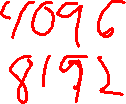 4096
8192